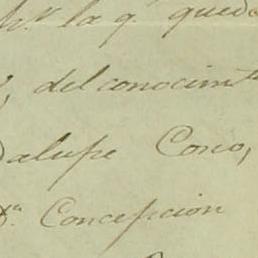 h.r la q.e quedo
del conocim.to
dalupe Cono,
D.a Concepcion